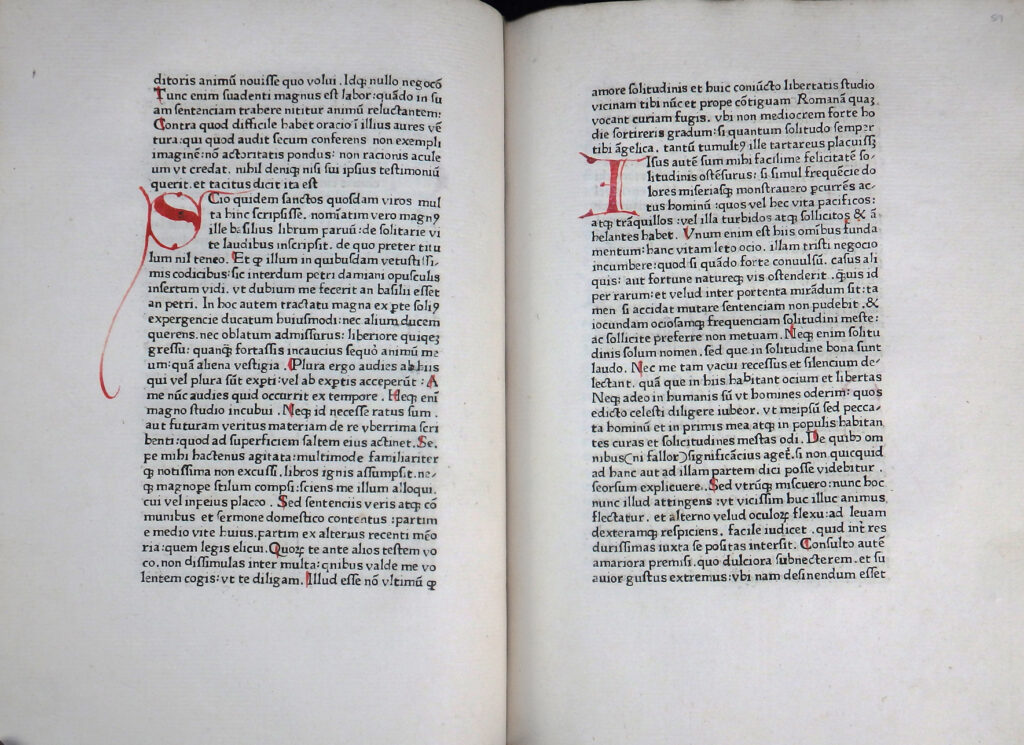 ditoris animū nouiſſe quo volui. Idqꝫ nullo negocō
Tunc enim ſuadenti magnus eſt labor: quādo in ſu
am ſentenciam trahere nititur animū reluctantem:
Contra quod difficile habet oracio ī illius aures vē
tura: qui quod audit ſecum conferens non exempli
imaginē: nō actoritatis pondus: non racionis acule
um vt credat. nihil deniqꝫ niſi ſui ipſius teſtimoniū
querit. et tacitus dicit ita eſt
SCio quidem ſanctos quoſdam viros mul
ta hinc ſcripſiſſe. nomīatim vero magnꝰ
ille baſilius librum paruū: de ſolitarie vi
te laudibus inſcripſit. de quo preter titu
lum nil teneo. Et ꝙ illum in quibuſdam vetuſtiſſi-
mis codicibus: ſic interdum petri damiani opuſculis
inſertum vidi. vt dubium me fecerit an baſilii eſſet
an petri. In hoc autem tractatu magna ex ꝑte ſoliꝰ
expergencie ducatum huiuſmodi: nec alium ducem
querens. nec oblatum admiſſurus: liberiore quiqeꝫ
greſſu: quanqꝫ fortaſſis incaucius ſequor animū me
um: quā aliena veſtigia. Plura ergo audies ab hiis
qui vel plura ſūt expti: vel ab exptis acceperūt: A
me nūc audies quid occurrit ex tempore. Neqꝫ enī
magno ſtudio incubui. Neqꝫ id neceſſe ratus ſum.
aut futuram veritus materiam de re vberrima ſcri
benti: quod ad ſuperficiem ſaltem eius actinet. Se.
pe mihi hactenus agitata: multimode familiariter
ꝙ notiſſima non excuſſi. libros ignis aſſumpſit. ne-
ꝙ magnope ſtilum compſi: ſciens me illum alloqui.
cui vel inpeius placeo. Sed ſentenciis veris atqꝫ cō
munibus et ſermone domeſtico contentus: partim
e medio vite huius. partim ex alterius recenti mēo
ria: quem legis elicui. Quoꝝ te ante alios teſtem vo
co. non diſſimulas inter multa: quibus valde me vo
lentem cogis: vt te diligam. Illud eſſe nō vltimū ꝙ
amore ſolitudinis et huic coniūcto libertatis ſtudio
vicinam tibi nūc et prope cōtiguam Romanā quaꝫ
vocant curiam fugis. vbi non mediocrem forte ho
die ſortireris gradum: ſi quantum ſolitudo ſemper
tibi āgelica. tantū tumultꝰ ille tartareus placuiſſꝫ
IIſus autē ſum mihi facilime felicitatē ſo-
litudinis oſtēſurus: ſi ſimul frequēcie do
lores miſeriaſqꝫ monſtrauero pcurrēs ac-
tus hominū: quos vel hec vita pacificos:
atqꝫ trāquillos: vel illa turbidos atqꝫ ſollicitos & ā
helantes habet. Vnum enim eſt hiis omībus funda
mentum: hanc vitam leto ocio. illam triſti negocio
incumbere: quod ſi quādo forte conuulſū. caſus ali
quis: aut fortune natureqꝫ vis oſtenderit. quis id
per rarum: et velud inter portenta mirādum ſit: ta
men ſi accidat mutare ſentenciam non pudebit. &
iocundam ocioſamqꝫ frequenciam ſolitudini meſte:
ac ſollicite preferre non metuam. Neqꝫ enim ſolitu
dinis ſolum nomen. ſed que in ſolitudine bona ſunt
laudo. Nec me tam vacui receſſus et ſilencium de-
lectant. quā que in hiis habitant ocium et libertas
Neqꝫ adeo in humanis ſū vt homines oderim: quos
edicto celeſti diligere iubeor. vt meipſū ſed pecca-
ta hominū et in primis mea atqꝫ in populis habitan
tes curas et ſolicitudines meſtas odi. De quibꝰ om
nibus (ni fallor) ſignificācius agerē. ſi non quicquid
ad hanc aut ad illam partem dici poſſe videbitur.
ſeorſum explicuere. Sed vtrūqꝫ miſcuero: nunc hoc
nunc illud attingens: vt viciſſim huc illuc animus
flectatur. et alterno velud oculoꝝ flexu: ad leuam
dexteramqꝫ reſpiciens. facile iudicet. quid īnt res
duriſſimas iuxta ſe poſitas interſit. Conſulto autē
amariora premiſi. quo dulciora ſubnecterem. et ſu
auior guſtus extremus: vbi nam deſinendum eſſet